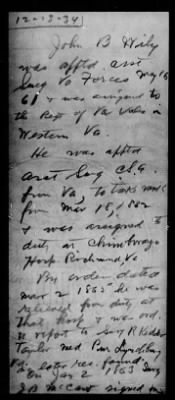 12-13-34
John B Wily
was apptd asst
Surg Va Forces May 16
61 & was assigned to
the Regt of Va Vols in
Western Va.
He was apptd
asst Surg C.S.A.
from Va, to take rank
from Mar 18, 1862
& was assigned to
duty at Chimborazo
Hosp Richmond Va
By order dated
Mar 2 1865 he was
relieved from duty at
that Hosp & was ord.
to report to Surg R
Taylor Med Dir Lynchburg
Va
On Jan 2 1863 Surg
J B McCaw signed